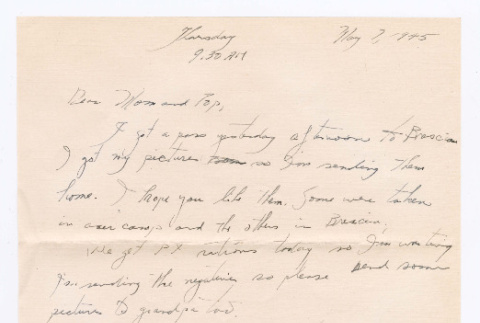 Thursday May 7, 1945
9:30 AM
Dear Mom and Pop,
I got a pass yesterday afternoon to Brescia
I got my pictures so I'm sending them
home. I hope you like them. Some were taken
in our camp and the others in Brescia,
We got PX rations today so I'm writing
I'm sending the negatives so please send some
pictures to grandpa too.